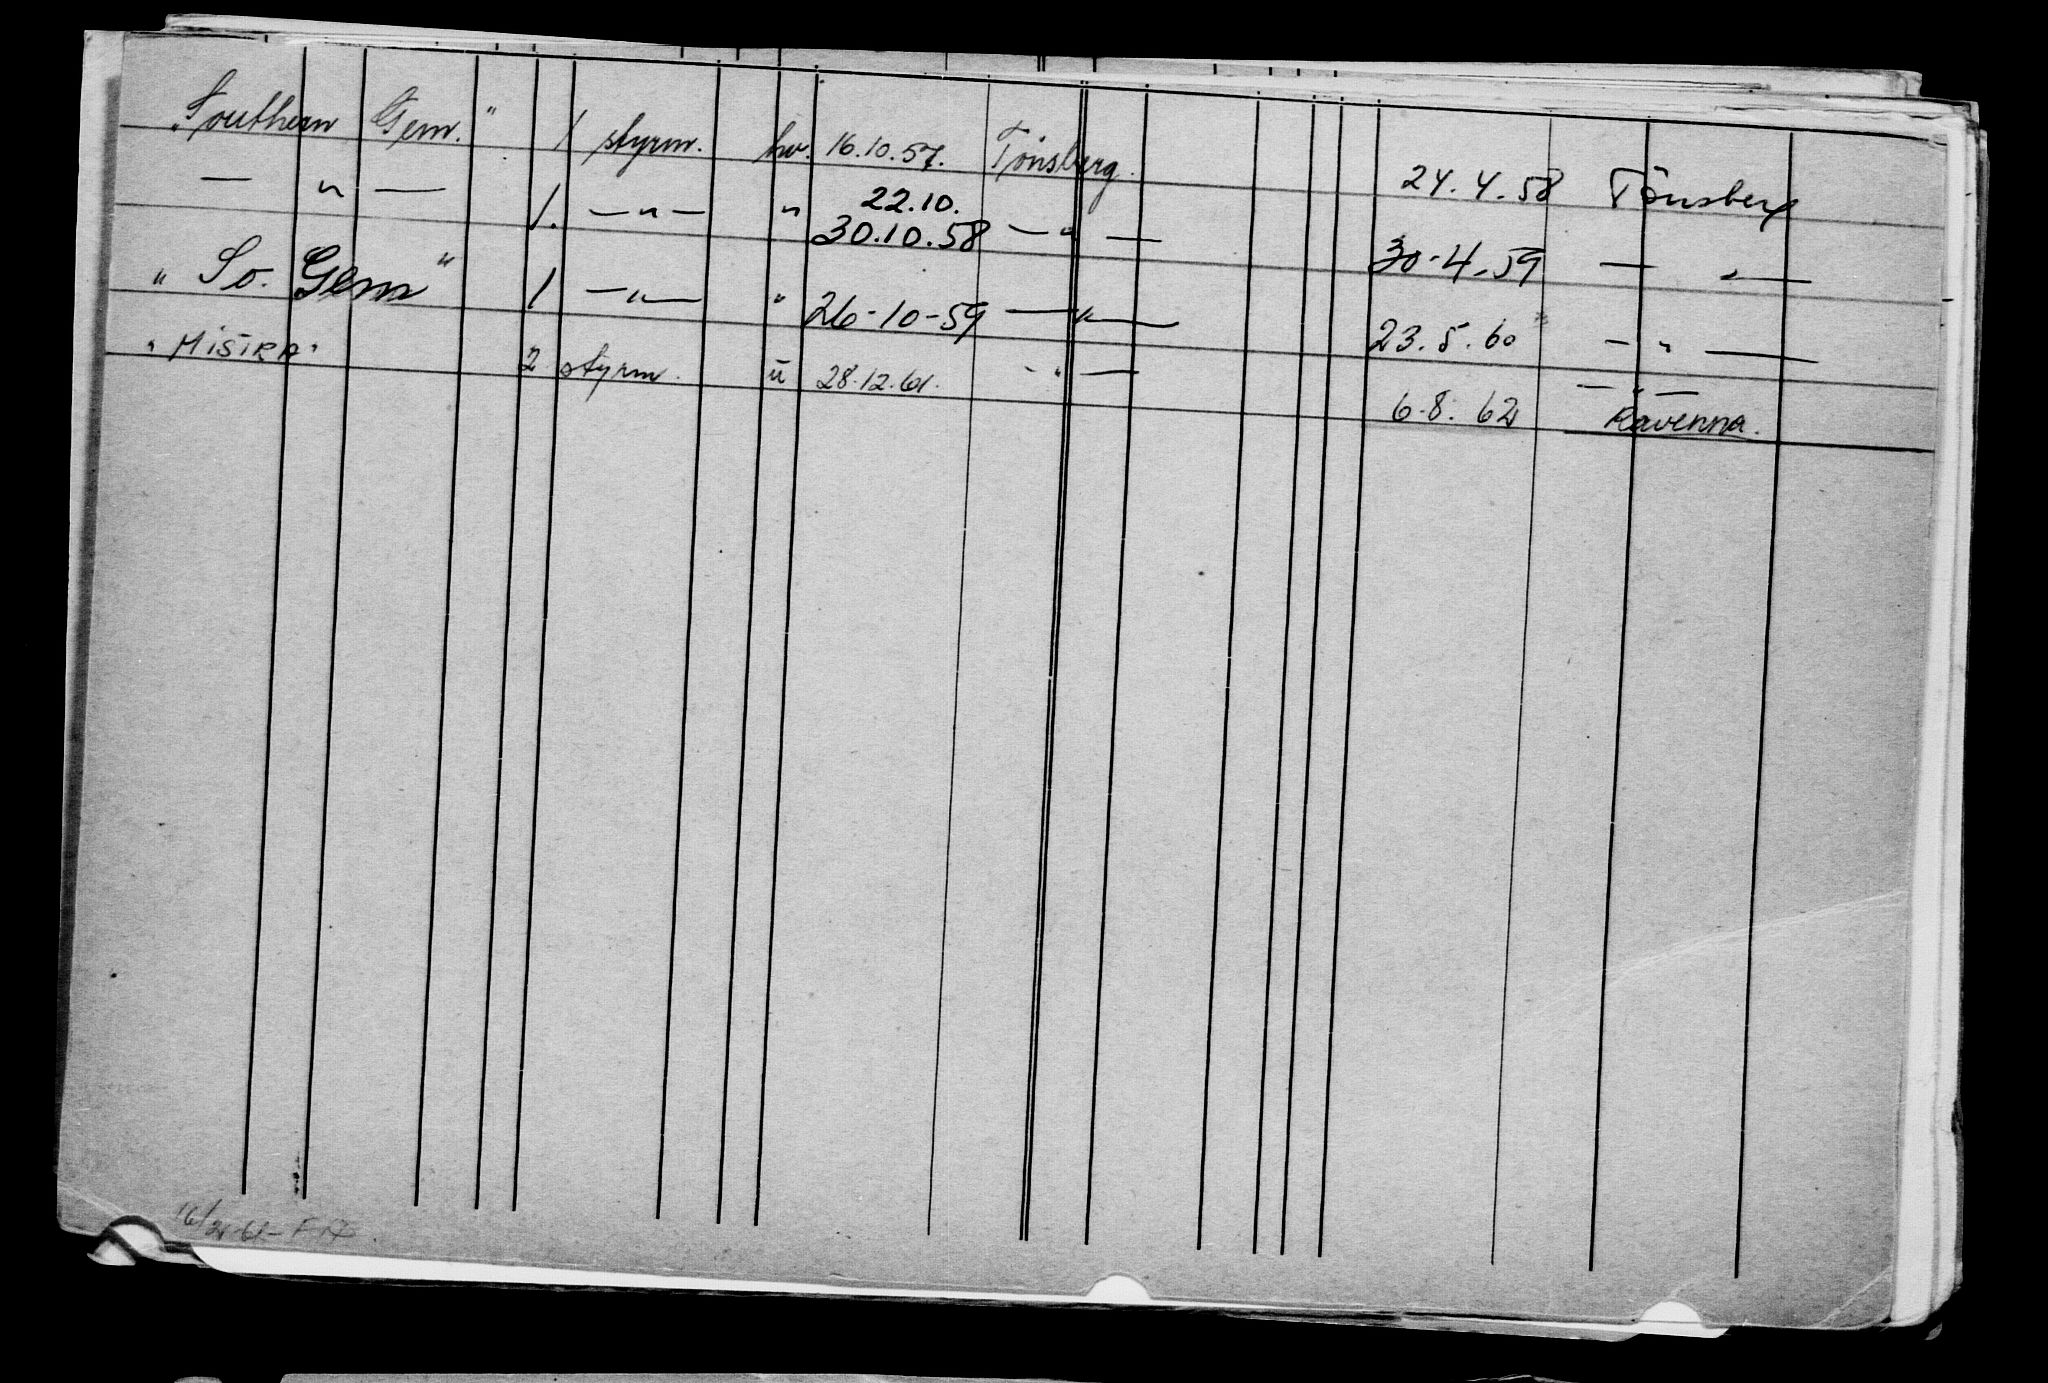 "Southern Gem." 1 styrm. hv. 16.10.57. Tønsberg. 24.4.58 Tønsberg
— " — 1. — " — " 22.10. 30.10.58 — " — 30-4-59 — " —
"So. Gem" 1 — " — " 26-10-59 — " — 23.5.60 — " —
"MISTRA" 2 styrm. u 28.12.61. - " — 6-8.62 — " — Ravenna.